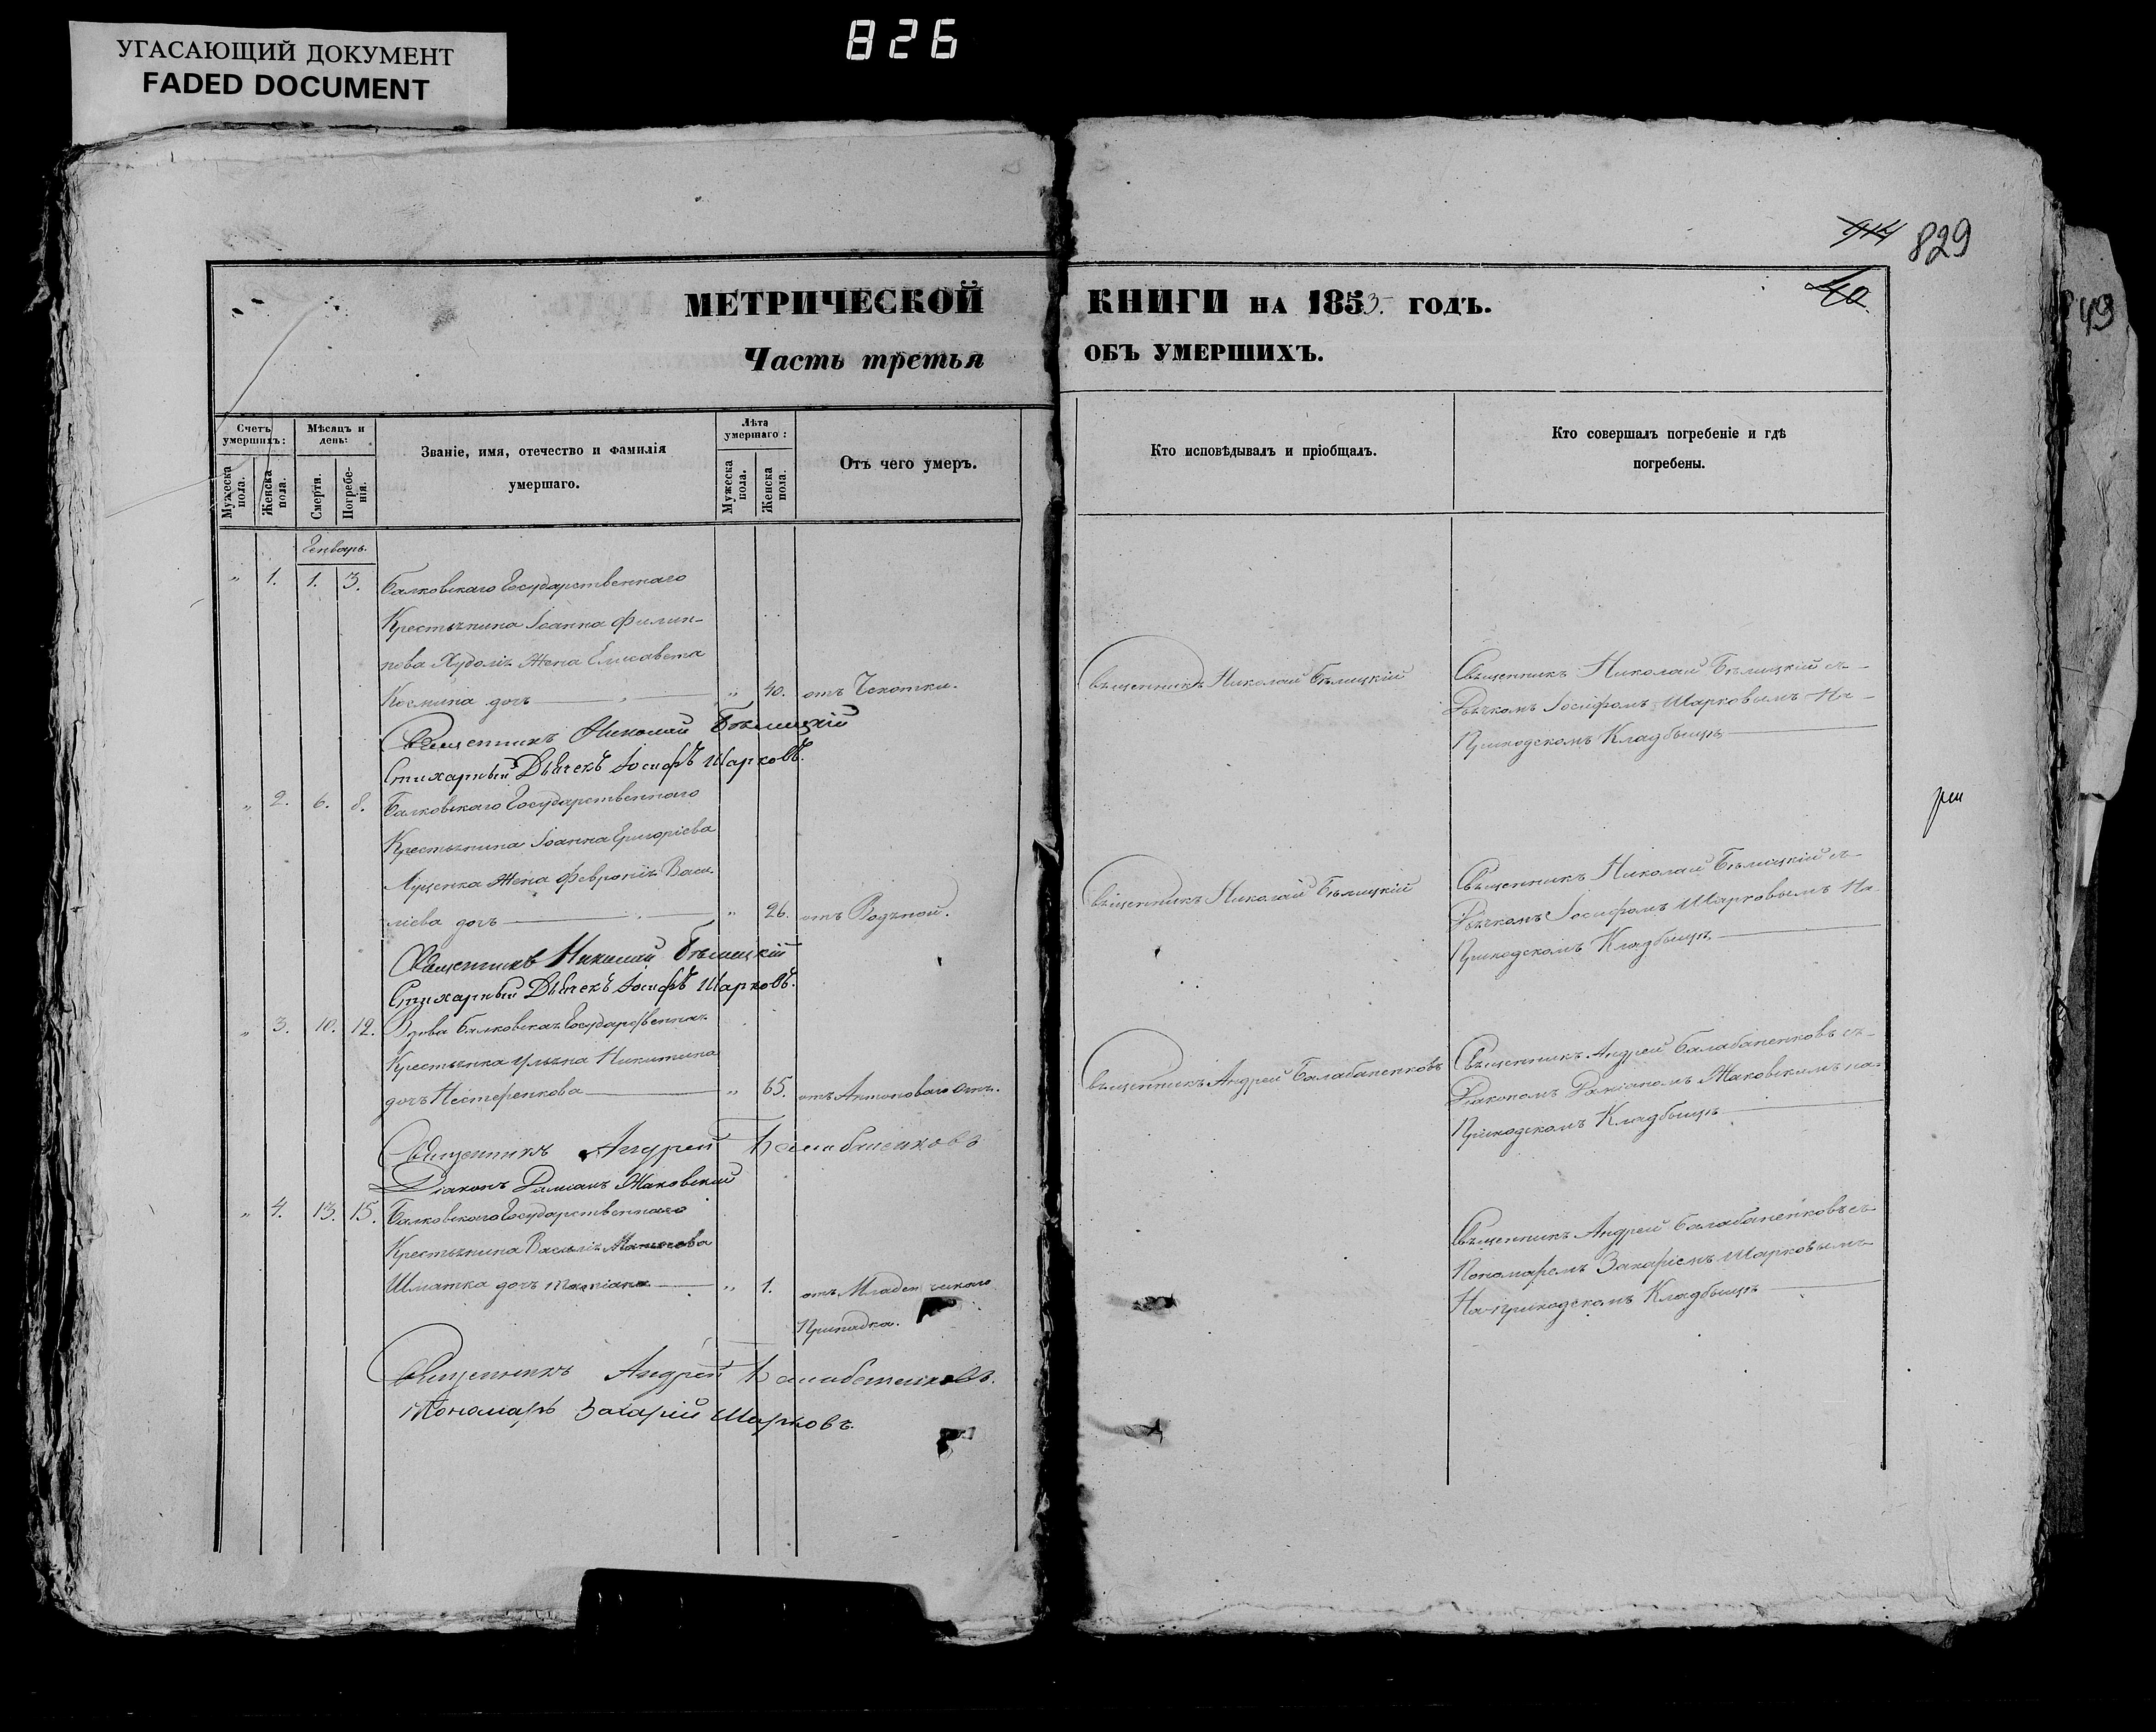 826
УГАСАЮЩИЙ ДОКУМЕНТ
FADED DOCUMENT
829
40
МЕТРИЧЕСКОЙ КНИГИ НА 1853 ГОДЪ.
Часть третья ОБЪ УМЕРШИХЪ.
Счетъ умершихъ:
Мужеска пола.
Женска пола.
Мѣсяцъ и день:
Смерти.
Погребенія.
Званіе, имя, отечество и фамилія
умершаго.
Лѣта умершаго:
Мужеска пола.
Женска пола.
Отъ чего умеръ.
Кто исповѣдывалъ и пріобщалъ.
Кто совершалъ погребеніе и гдѣ
погребены.
Генварь.
" 1. 1. 3. Балковскаго Государственнаго
Крестьянина Іоанна Филип-
пова Жена Елисавета
Космина дочь " 40. отъ Чахотки.
Священникъ Николай Бѣлицкій
Священникъ Николай Бѣлицкій съ
Дьячкомъ Іосифомъ Шарковымъ На
Приходскомъ Кладбищѣ
Священникъ Николай Бѣлицкій
Стихарный Дьячекъ Іосифъ Шарковъ.
" 2. 6. 8. Балковскаго Государственнаго
Крестьянина Іоанна Григоріева
Луценка Жена Февронія Васи-
ліева дочь " 26. отъ Водяной.
Священникъ Николай Бѣлицкій
Священникъ Николай Бѣлицкій съ
Дьячкомъ Іосифомъ Шарковымъ На
Приходскомъ Кладбищѣ
Священникъ Николай Бѣлицкій
Стихарный Дьячекъ Іосифъ Шарковъ.
" 3. 10. 12. Вдова Балковская Государственная
Крестьянка Ульяна Никитина
дочь Нестеренкова " 65. отъ Антоноваго Огня.
Священникъ Андрей Балабаненковъ
Священникъ Андрей Балабаненковъ съ
Діакономъ Даміаномъ Маковскимъ на
Приходскомъ Кладбищѣ
Священникъ Андрей Балабаненковъ
Діаконъ Даміанъ Маковскій
" 4. 13. 15. Балковскаго Государственнаго
Крестьянина Василія
Шматка дочь Татіана " 1. отъ Младенческаго
Припадка.
Священникъ Андрей Балабаненковъ съ
Пономаремъ Захаріемъ Шарковымъ
На приходскомъ Кладбищѣ
Священникъ Андрей Балабаненковъ.
Пономарь Захарій Шарковъ.